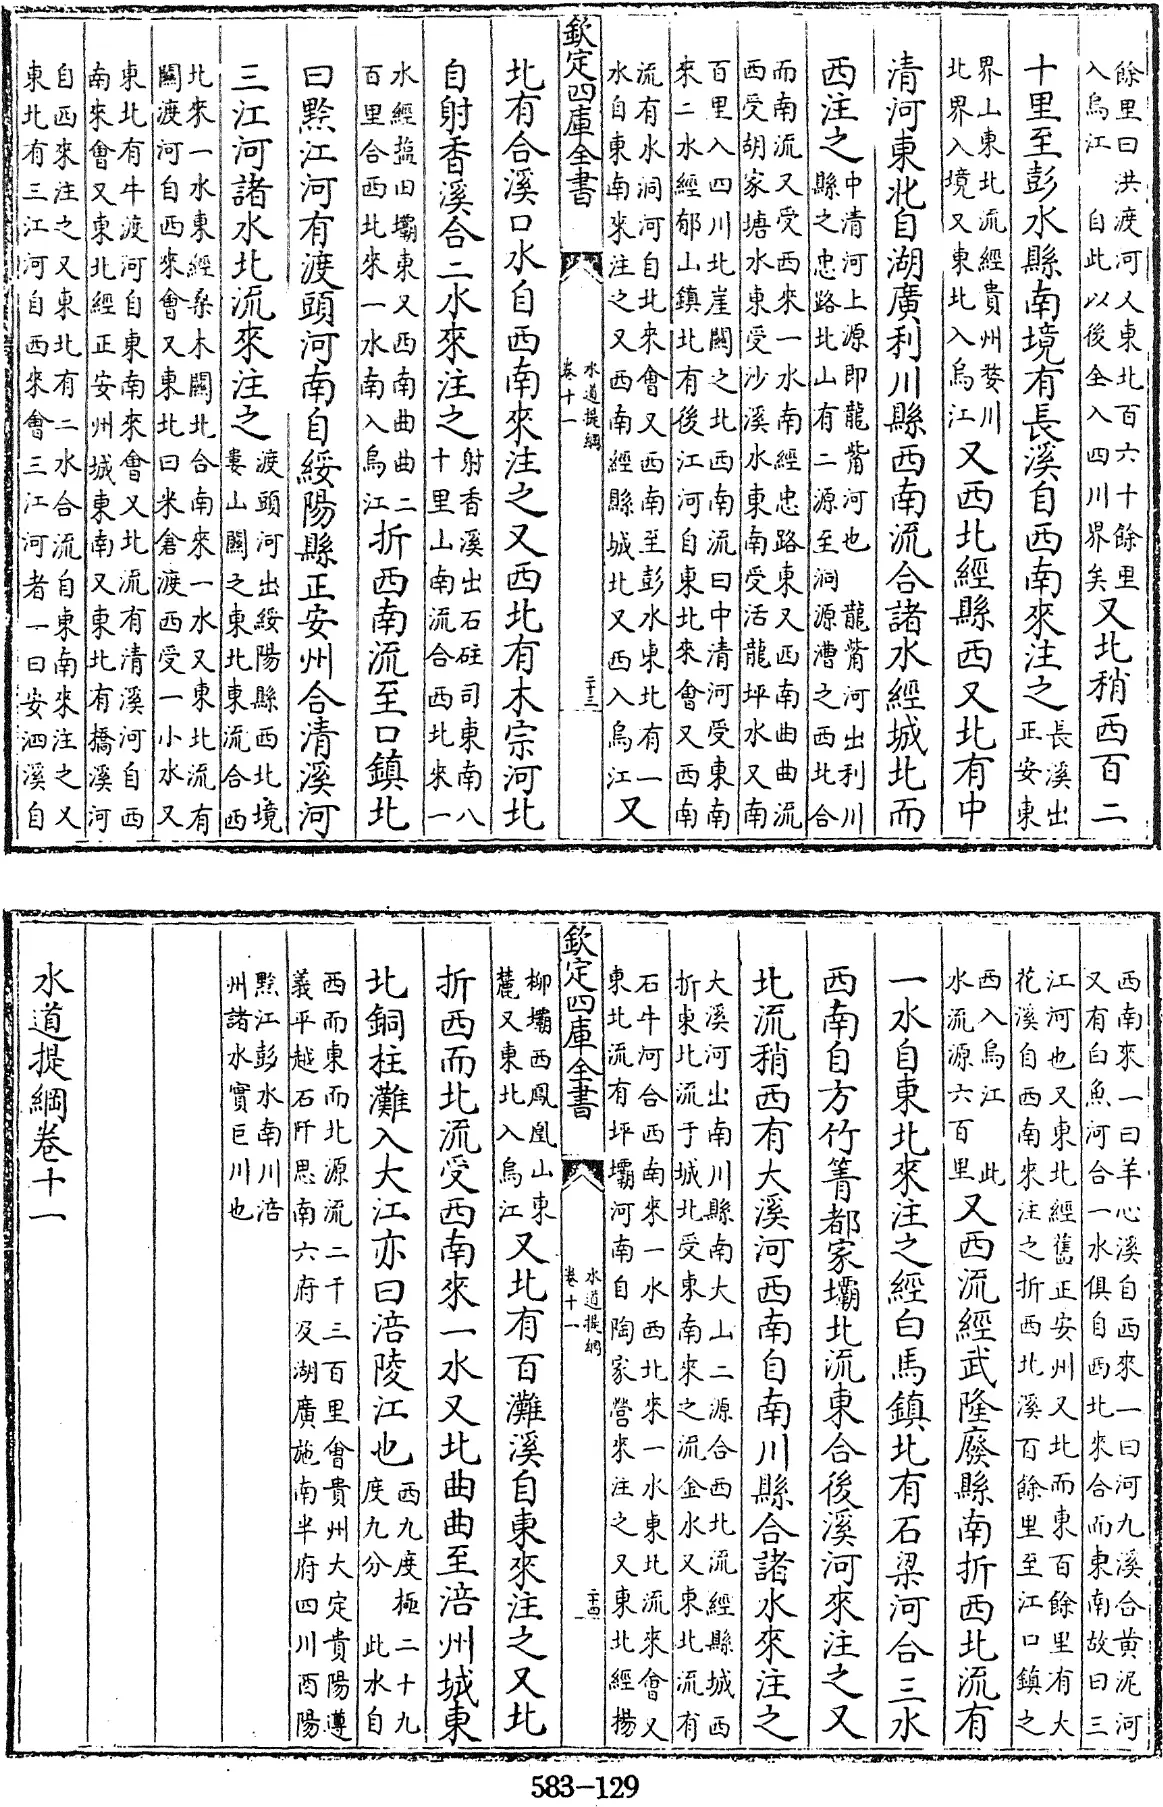 餘里曰洪渡河又東北百六十餘里入烏江　自此以後全入四川界矣又北稍西百二
十里至彭水縣南境有長溪自西南來注之長溪出正安東
界山東北流經貴州婺川北界入境又東北入烏江又西北經縣西又北有中
清河東北自湖廣利川縣西南流合諸水經城北而
西注之中清河上源即龍嘴河也　龍嘴河出利川縣之忠路北山有二源至洞源漕之西北合
而南流又受西來一水南經忠路東又西南曲曲流西受胡家塘水東受沙溪水東南受活龍坪水又南
百里入四川北崖關之北西南流曰中清河受東南來二水經郁山鎮北有後江河自東北來會又西南
流有水洞河自北來會又西南至彭水東北有一水自東南來注之又西南經縣城北又西入烏江又
欽定四庫全書　水道提綱　卷十一　二十三
北有合溪口水自西南來注之又西北有木宗河北
自射香溪合二水來注之射香溪出石砫司東南八十里山南流合西北來一
水經鹽田壩東又西南曲曲二百里合西北來一水南入烏江折西南流至口鎮北
曰黔江河有渡頭河南自綏陽縣正安州合清溪河
三江河諸水北流來注之渡頭河出綏陽縣西北境婁山關之東北東流合西
北來一水東經桑木關北合南來一水又東北流有關渡河自西來會又東北曰米倉渡西受一小水又
東北有牛渡河自東南來會又北流有清溪河自西南來會又東北經正安州城東南又東北有橋溪河
自西來注之又東北有二水合流自東南來注之又東北有三江河自西來會三江河者一曰安泗溪自
西南來一曰羊心溪自西來一曰河九溪合黄泥河又有白魚河合一水俱自西北來合而東南故曰三
江河也又東北經舊正安州又北而東百餘里有大花溪自西南來注之折西北溪百餘里至江口鎮之
西入烏江　此水流源六百里又西流經武隆廢縣南折西北流有
一水自東北來注之經白馬鎮北有石梁河合三水
西南自方竹箐都家壩北流東合後溪河來注之又
北流稍西有大溪河西南自南川縣合諸水來注之
大溪河出南川縣南大山二源合西北流經縣城西折東北流于城北受東南來之流金水又東北流有
石牛河合西南來一水西北來一水東北流來會又東北流有坪壩河南自陶家營來注之又東北經楊
欽定四庫全書　水道提綱　卷十一　二十四
柳壩西鳳凰山東麓又東北入烏江又北有百灘溪自東來注之又北
折西而北流受西南來一水又北曲曲至涪州城東
北銅柱灘入大江亦曰涪陵江也西九度極二十九度九分　此水自
西而東而北源流二千三百里會貴州大定貴陽遵義平越石阡思南六府及湖廣施南半府四川酉陽
黔江彭水南川涪州諸水實巨川也
水道提綱卷十一
583-129